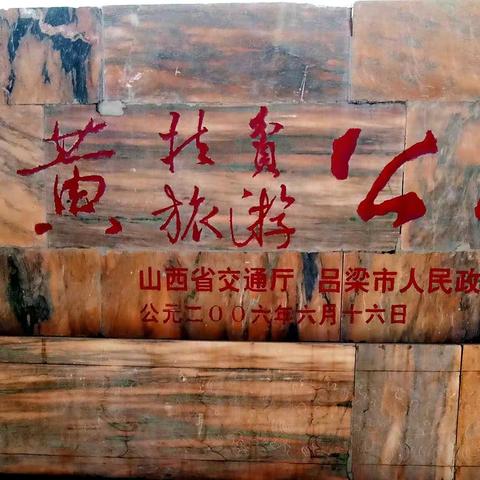 黄
扶贫
旅游
公
山西省交通厅 吕梁市人民政
公元二〇〇六年六月十六日